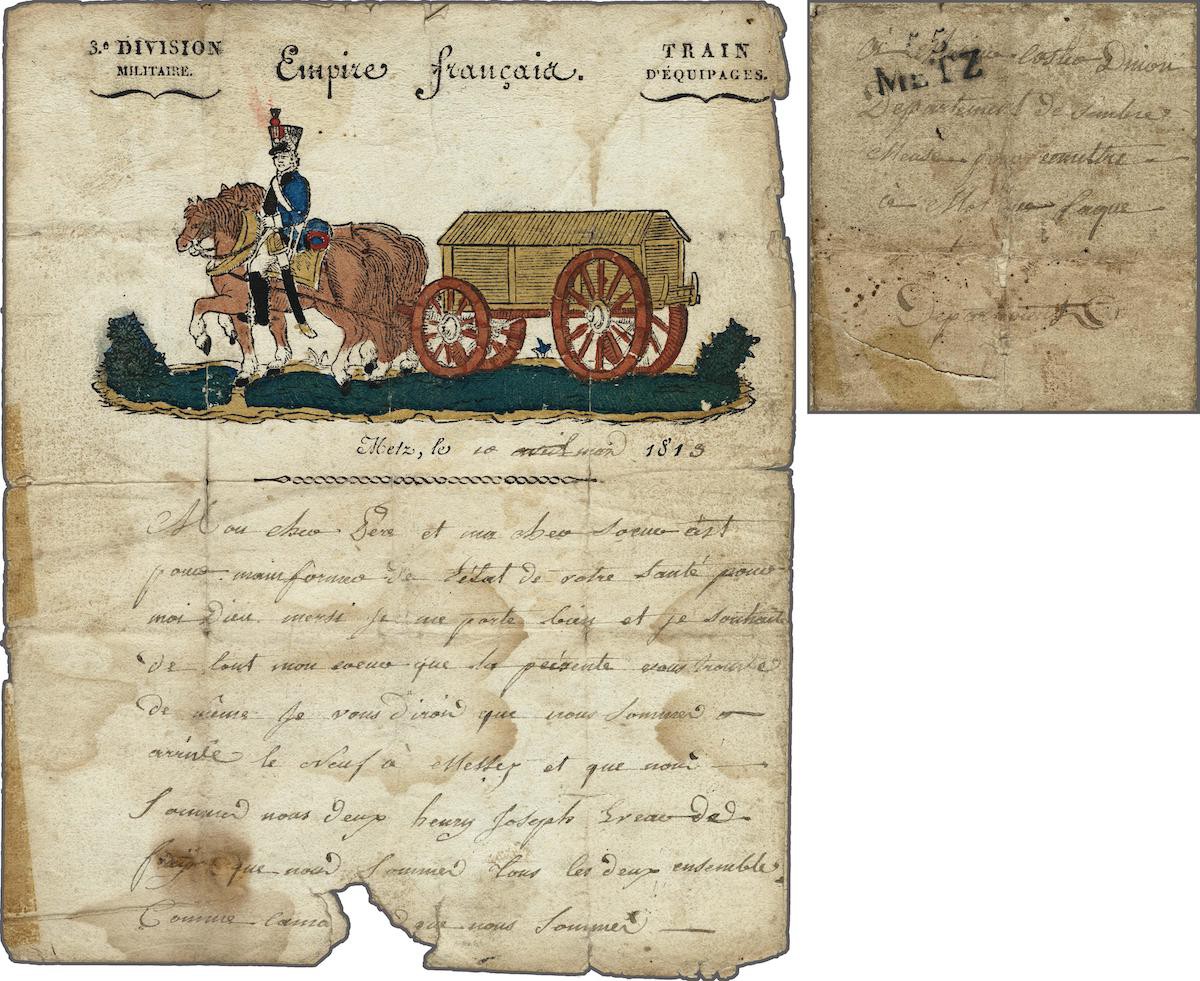 3.e DIVISION
MILITAIRE.
Empire français.
TRAIN
D'ÉQUIPAGES.
Metz, le 10 avril mai 1813
Mon cher Père et ma cher soeur c'est
pour mainformer de l'état de votre santé pour
moi Dieu mersi je me porte bien et je souhaite
de tout mon coeur que la présente vous trouve
de même Je vous dirois que nous sommes
arrivée le neuf à Messe et que nous
sommes nous deux henry Joseph
que nous sommes tous les deux ensemble
Comme cama que nous sommes
55
METZ
Dinon
Departement de sambre
Meuse pour remettre
à
Departement